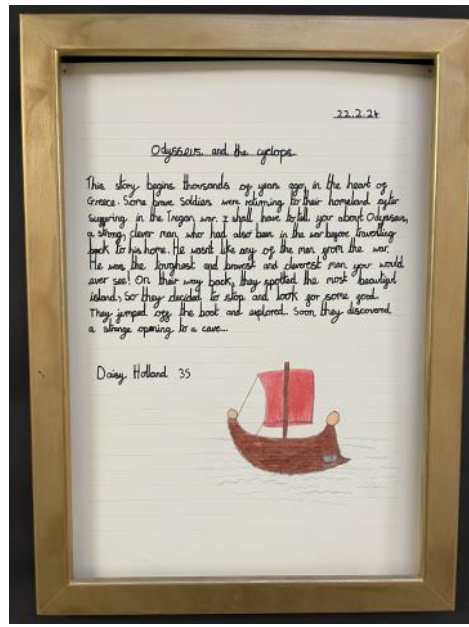 22.2.24
Odysseus and the cyclops
This story begins thousands of years ago, in the heart of
Greece. Some brave soldiers were returning to their homeland after
suffering in the Trogan war. I shall have to tell you about Odysseus,
a strong, clever man, who had also been in the war before travelling
back to his home. He wasn't like any of the men from the war.
He was the toughest and bravest and cleverest man you would
ever see! On their way back, they spotted the most beautiful
island, so they decided to stop and look for some food.
They jumped off the boat and explored. Soon, they discovered
a strange opening to a cave...
Daisy Holland 3S